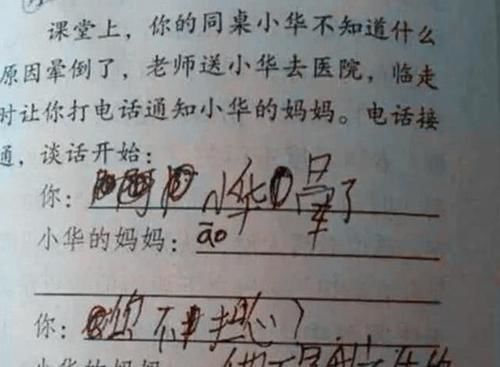 课堂上，你的同桌小华不知道什么
原因晕倒了，老师送小华去医院，临走
时让你打电话通知小华的妈妈。电话接
通，谈话开始：
你：小华晕了
小华的妈妈：āo
你：您不担心？
小华的妈妈